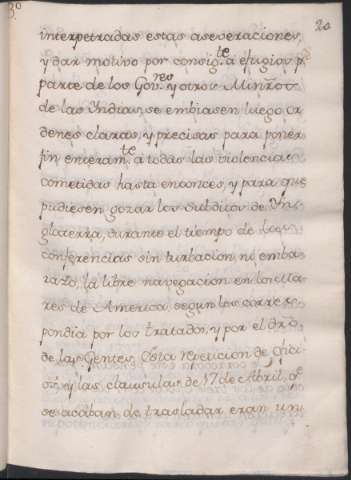 20
interpetradas estas aseveraciones,
y dar motivo por consig.te á efugios p.r
parte de los Gov.res y otros Minros
de las Yndias, se embiasen luego or
denes claras, y precisas para poner
fin enteram.te á todas las violencias
cometidas hasta entonces, y para que
pudiesen gozar los subditos de Yn
glaterra, durante el tiempo de las
conferencias sin turbacion, ni emba
razo, la libre navegacion en los Ma
res de America, segun les corres
pondia por los tratados, y por el dro
de las Gentes. Esta repeticion de Ofici
os, y las clausulas de 17 de Abril, q.e
se acaban de trasladar, eran un